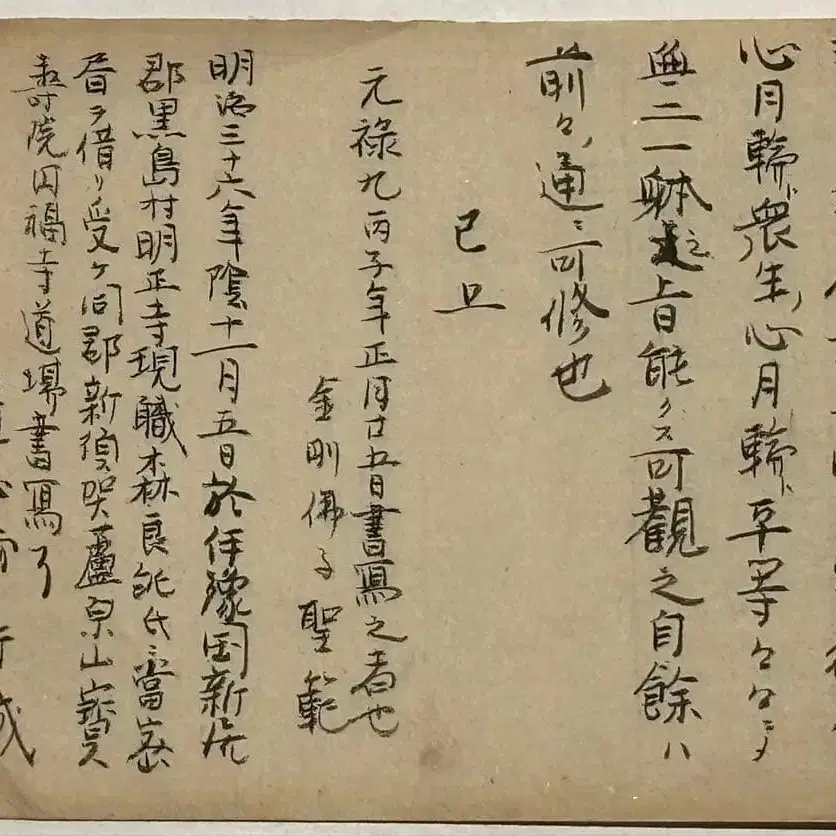 心月輪ト衆生ノ心月輪ト平等々々ニメ
無二一躰之上旨能クス可觀之自餘ハ
前々ノ通ニ可修也
已旦
元禄九丙子年正月廿五日書寫之者也
金剛佛子聖範
明治三十六年陰十一月五日於伊豫国新居
郡黒島村明正寺現職森良能氏ニ當
ヲ借リ受ケ同郡新須賀盧泉山寳
壽院円福寺道場書寫了